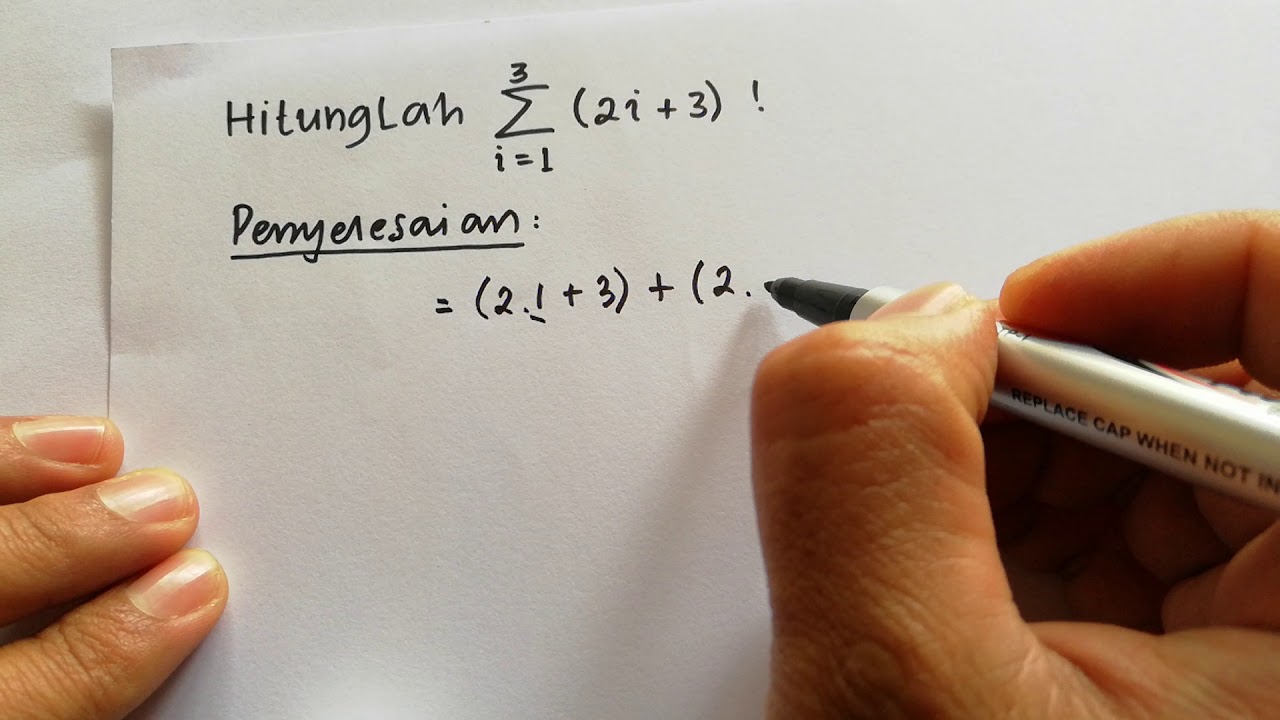 Hitunglah \sum_{i=1}^{3} (2i + 3) !
Penyelesaian:
= (2.1 + 3) + (2.
REPLACE CAP WHEN NOT IN